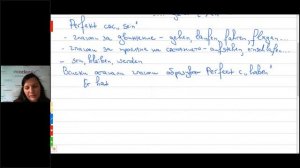 Perfekt със „sein"
- глаголи за движение - gehen, laufen, fahren, fliegen...
- глаголи за промяна на състоянието - aufstehen, einschlafen...
- sein, bleiben, werden
Всички останали глаголи образуват Perfekt с „haben"
Er hat